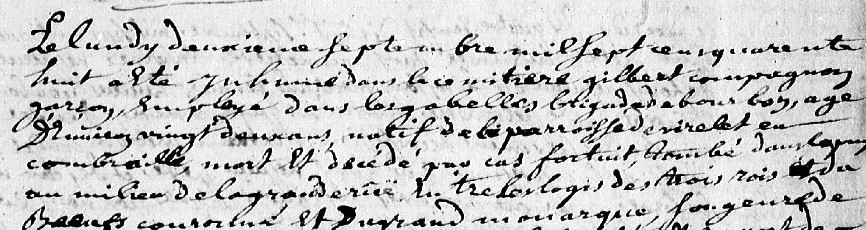 Le lundy deuxieme septembre mil sept cens quarente
huit a esté inhumé dans le cimitiere gilbert compagnon
garçon, Employé dans les gabelles brigade de bourbon, agé
D'environ vingt deux ans, natif de la parroisse de virlet en
combraille, mort Et decedé par cas fortuit, tombé dans le puis
au milieu de la grande rüe, Entre les logis des trois rois Et du
couronné Et Du grand monarque, songeur de